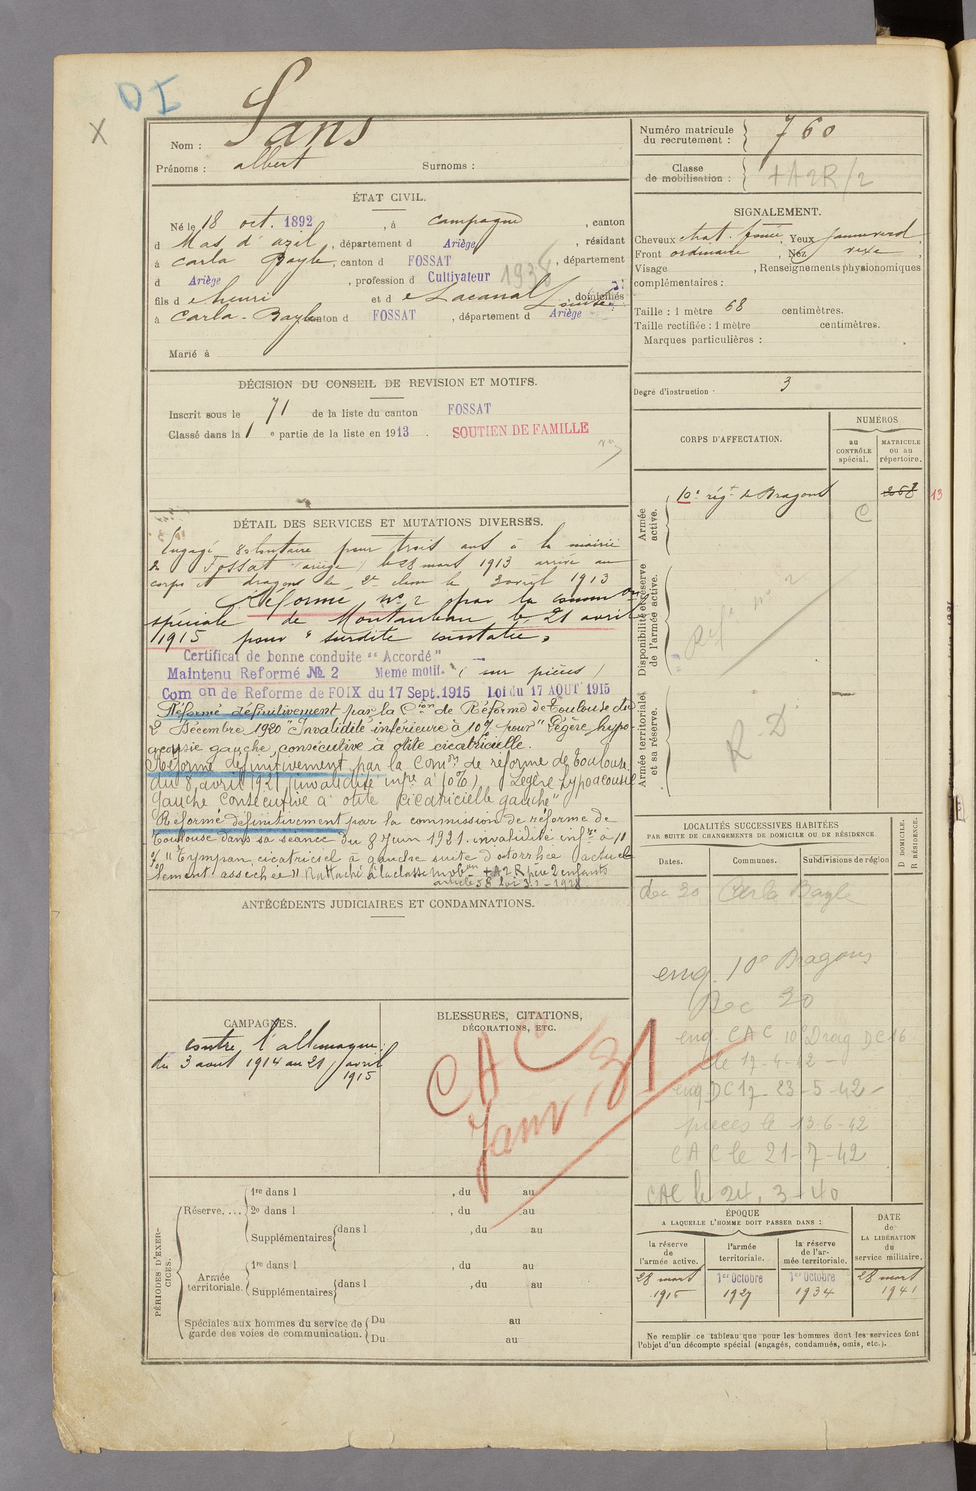 D I
X
Nom : Sans
Prénoms : albert Surnoms :
ÉTAT CIVIL.
Né le 18 oct. 1892, à Campagne, canton
d Mas d'azil, département d Ariège, résidant
à Carla Bayle, canton d FOSSAT, département
d Ariège, profession d Cultivateur 1938
fils d e henri et d e Lacanal Louise, domiciliés
à Carla-Bayle canton d FOSSAT, département d Ariège
Marié à
DÉCISION DU CONSEIL DE REVISION ET MOTIFS.
Inscrit sous le 71 de la liste du canton FOSSAT
Classé dans la 1e partie de la liste en 1913. SOUTIEN DE FAMILLE
DÉTAIL DES SERVICES ET MUTATIONS DIVERSES.
Engagé volontaire pour trois ans à la mairie
de Fossat (ariège) le 28 mars 1913 arrivé au
corps et dragons de 2e classe le 2 avril 1913
Réformé no 2 par la common
spéciale de Montauban le 21 avril
1915 pour "surdité constatée"
Certificat de bonne conduite "Accordé"
Maintenu Reformé No. 2 Meme motif (sur pièces)
Comon de Reforme de FOIX du 17 Sept. 1915 Loi du 17 AOUT 1915
Réformé définitivement par la Con de Réforme de Toulouse du
2 Décembre 1920 "Invalidité inférieure à 10% pour "Légère hypo-
acousie gauche, consécutive à otite cicatricielle.
Réformé définitivement par la Comon de réforme de toulouse
du 8 avril 1921 (invalidité infre à 10%) Légère hypoacousie
gauche consécutive à otite cicatricielle gauche"
Réformé définitivement par la commission de réforme de
Toulouse dans sa séance du 8 Juin 1921. invalidité infre à 10
% "Tympan cicatriciel à gauche suite d'otorrhée actuel-
lement asséchée" Rattaché à la classe mobon +A2R père 2 enfants
article 58 loi 31-3-1928
ANTÉCÉDENTS JUDICIAIRES ET CONDAMNATIONS.
CAMPAGNES.
contre l'allemagne
du 3 aout 1914 au 21 avril
1915
BLESSURES, CITATIONS,
DÉCORATIONS, ETC.
CAC
Janv. 31
PÉRIODES D'EXERCICES.
Réserve.... 1re dans l , du au
2e dans l , du au
Supplémentaires dans l , du au
Armée territoriale. 1re dans l , du au
Supplémentaires dans l , du au
Spéciales aux hommes du service de garde des voies de communication. Du au
Du au
Numéro matricule du recrutement : 760
Classe de mobilisation : +A2R/2
SIGNALEMENT.
Cheveux chat. foncé, Yeux jaune verd,
Front ordinaire, Nez rexe,
Visage , Renseignements physionomiques
complémentaires :
Taille : 1 mètre 68 centimètres.
Taille rectifiée : 1 mètre centimètres.
Marques particulières :
Degré d'instruction : 3
CORPS D'AFFECTATION.
NUMÉROS
au CONTRÔLE spécial.
MATRICULE ou au répertoire.
Armée active.
10e régt de Dragons
C
13
Disponibilité et réserve de l'armée active.
Réfé no 2
Armée territoriale et sa réserve.
R.D.
LOCALITÉS SUCCESSIVES HABITÉES
PAR SUITE DE CHANGEMENTS DE DOMICILE OU DE RÉSIDENCE.
Dates. Communes. Subdivisions de région D DOMICILE. R RÉSIDENCE.
dec 20 Carla Bayle
enq. 10e Dragons
Dec 20
enq. CAC 10e Drag DC 16
le 17-4-42
enq DC 17 - 23-5-42
pièces le 13-6-42
CAC le 21-7-42
CAC le 24, 3-40
ÉPOQUE
A LAQUELLE L'HOMME DOIT PASSER DANS :
la réserve de l'armée active.
l'armée territoriale.
la réserve de l'armée territoriale.
DATE de LA LIBÉRATION du service militaire.
28 mars 1916
1er Octobre 1927
1er Octobre 1934
28 mars 1941
Ne remplir ce tableau que pour les hommes dont les services font
l'objet d'un décompte spécial (engagés, condamnés, omis, etc.).